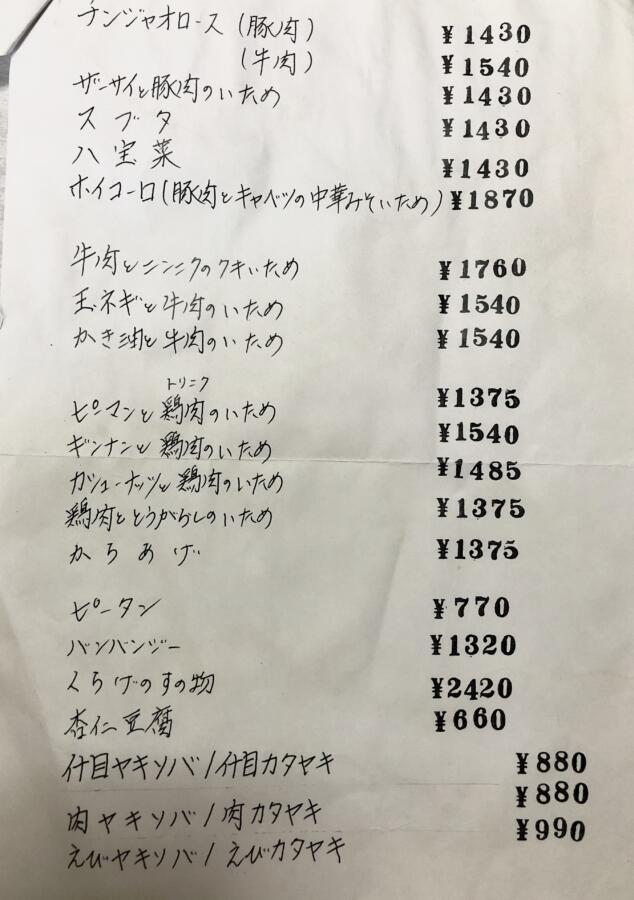 チンジャオロース (豚肉) ¥1430
(牛肉) ¥1540
ザーサイと豚肉のいため ¥1430
スブタ ¥1430
八宝菜 ¥1430
ホイコーロ(豚肉とキャベツの中華みそいため) ¥1870
牛肉とニンニクのクキいため ¥1760
玉ネギと牛肉のいため ¥1540
かき油と牛肉のいため ¥1540
トリニク
ピーマンと鶏肉のいため ¥1375
ギンナンと鶏肉のいため ¥1540
カシューナッツと鶏肉のいため ¥1485
鶏肉ととうがらしのいため ¥1375
からあげ ¥1375
ピータン ¥770
バンバンジー ¥1320
くらげのすの物 ¥2420
杏仁豆腐 ¥660
什目ヤキソバ/什目カタヤキ ¥880
肉ヤキソバ/肉カタヤキ ¥880
えびヤキソバ/えびカタヤキ ¥990